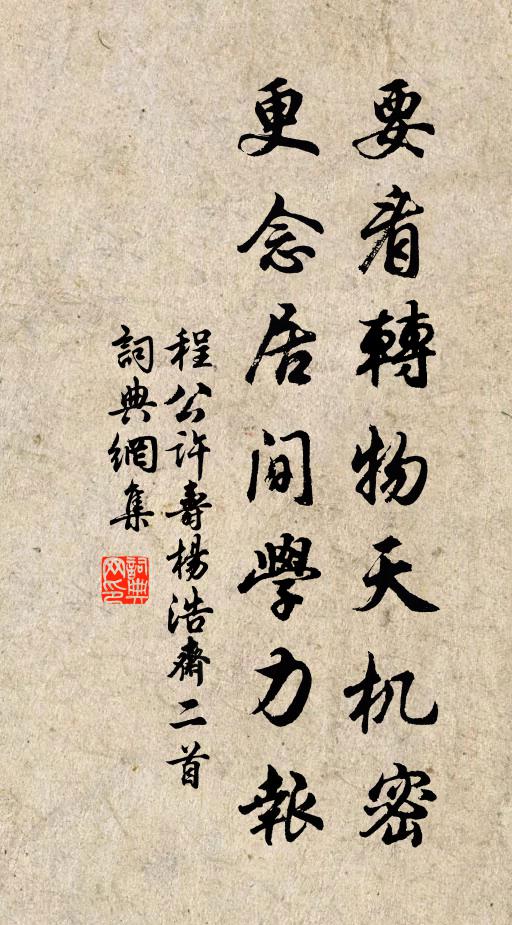 要看轉物天机密
更念居間學力報
程公許壽楊浩齋二首
詞典網集
詞典
网印